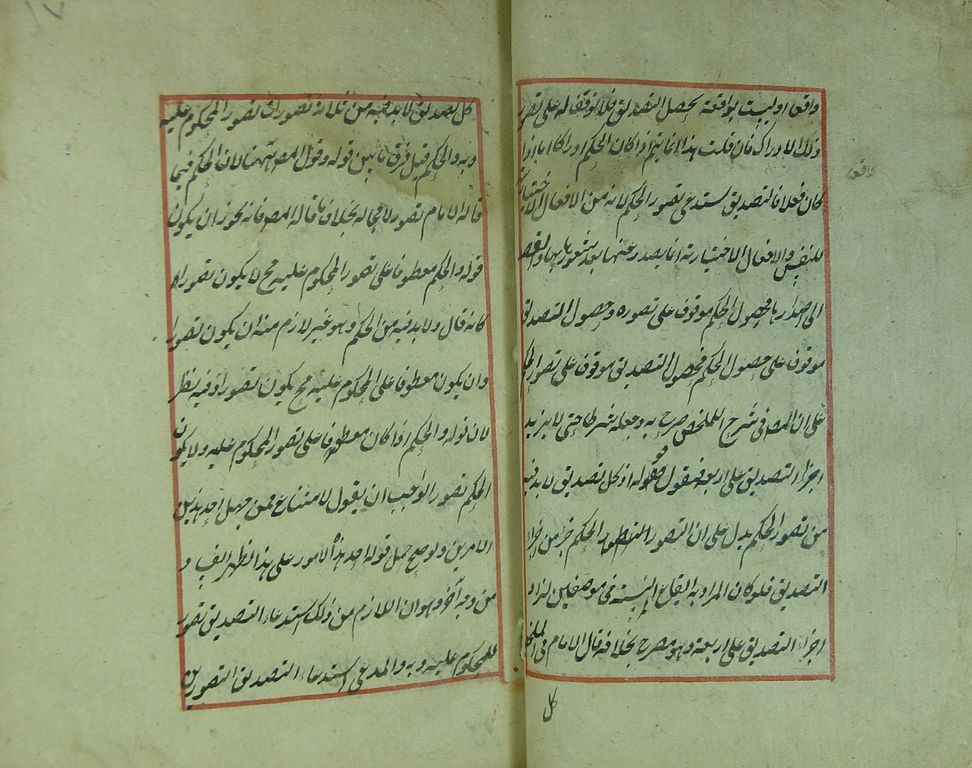 واقع او ليست بواقعة يحصل التصديق فلا توقف له على تصور
ذلك الادراك فان قلت هذا انما يتم اذا كان الحكم ادراكا اما اذا
كان فعلا فالتصديق يستدعى تصور الحكم لانه فعل من الافعال الاختيارية
للنفس والافعال الاختيارية انما يصدر عنها بعد شعورها بها والقصد
الى اصدارها فحصول الحكم موقوف على تصوره وحصول التصديق
موقوف على حصول الحكم فحصول التصديق موقوف على تصور الحكم
على ان المصـ فى شرح الملخص صرح به وجعله شرطا حتى لا يزيد
اجزاء التصديق على اربعة فنقول قوله اذ كل تصديق لابد فيه
من تصور الحكم يدل على ان التصور الحكم جزء من اجزاء
التصديق فلو كان المراد به ايقاع النسبة فى موضعين لزاد
اجزاء التصديق على اربعة وهو مصرح بخلافه قال الامام فى الملخص
واقع
كل
كل تصديق لابد فيه من ثلاثة تصورات تصور المحكوم عليه
وبه والحكم قيل فرق ما بين قوله وقول المصـ ههنا لان الحكم فيما
قاله الامام تصور لا محالة بخلاف ما قاله المصـ فانه يجوز ان يكون
قوله والحكم معطوفا على تصور المحكوم عليه فح لا يكون تصورا
كانه قال ولابد فيه من الحكم وهو غير لازم منه ان يكون تصورا
وان يكون معطوفا على المحكوم عليه فح يكون تصورا وفيه نظر
لان قوله والحكم اذا كان معطوفا على تصور المحكوم عليه ولا يكون
الحكم تصورا لوجب ان يقول لامتناع ممن جهل احد هذين
الامرين ولو صح حمل قوله احد هذه الامور على هذا لظهر الفساد
من وجه آخر وهو ان اللازم من ذلك استدعاء التصديق تصور
المحكوم عليه وبه والمدعى استدعاء التصديق التصورين